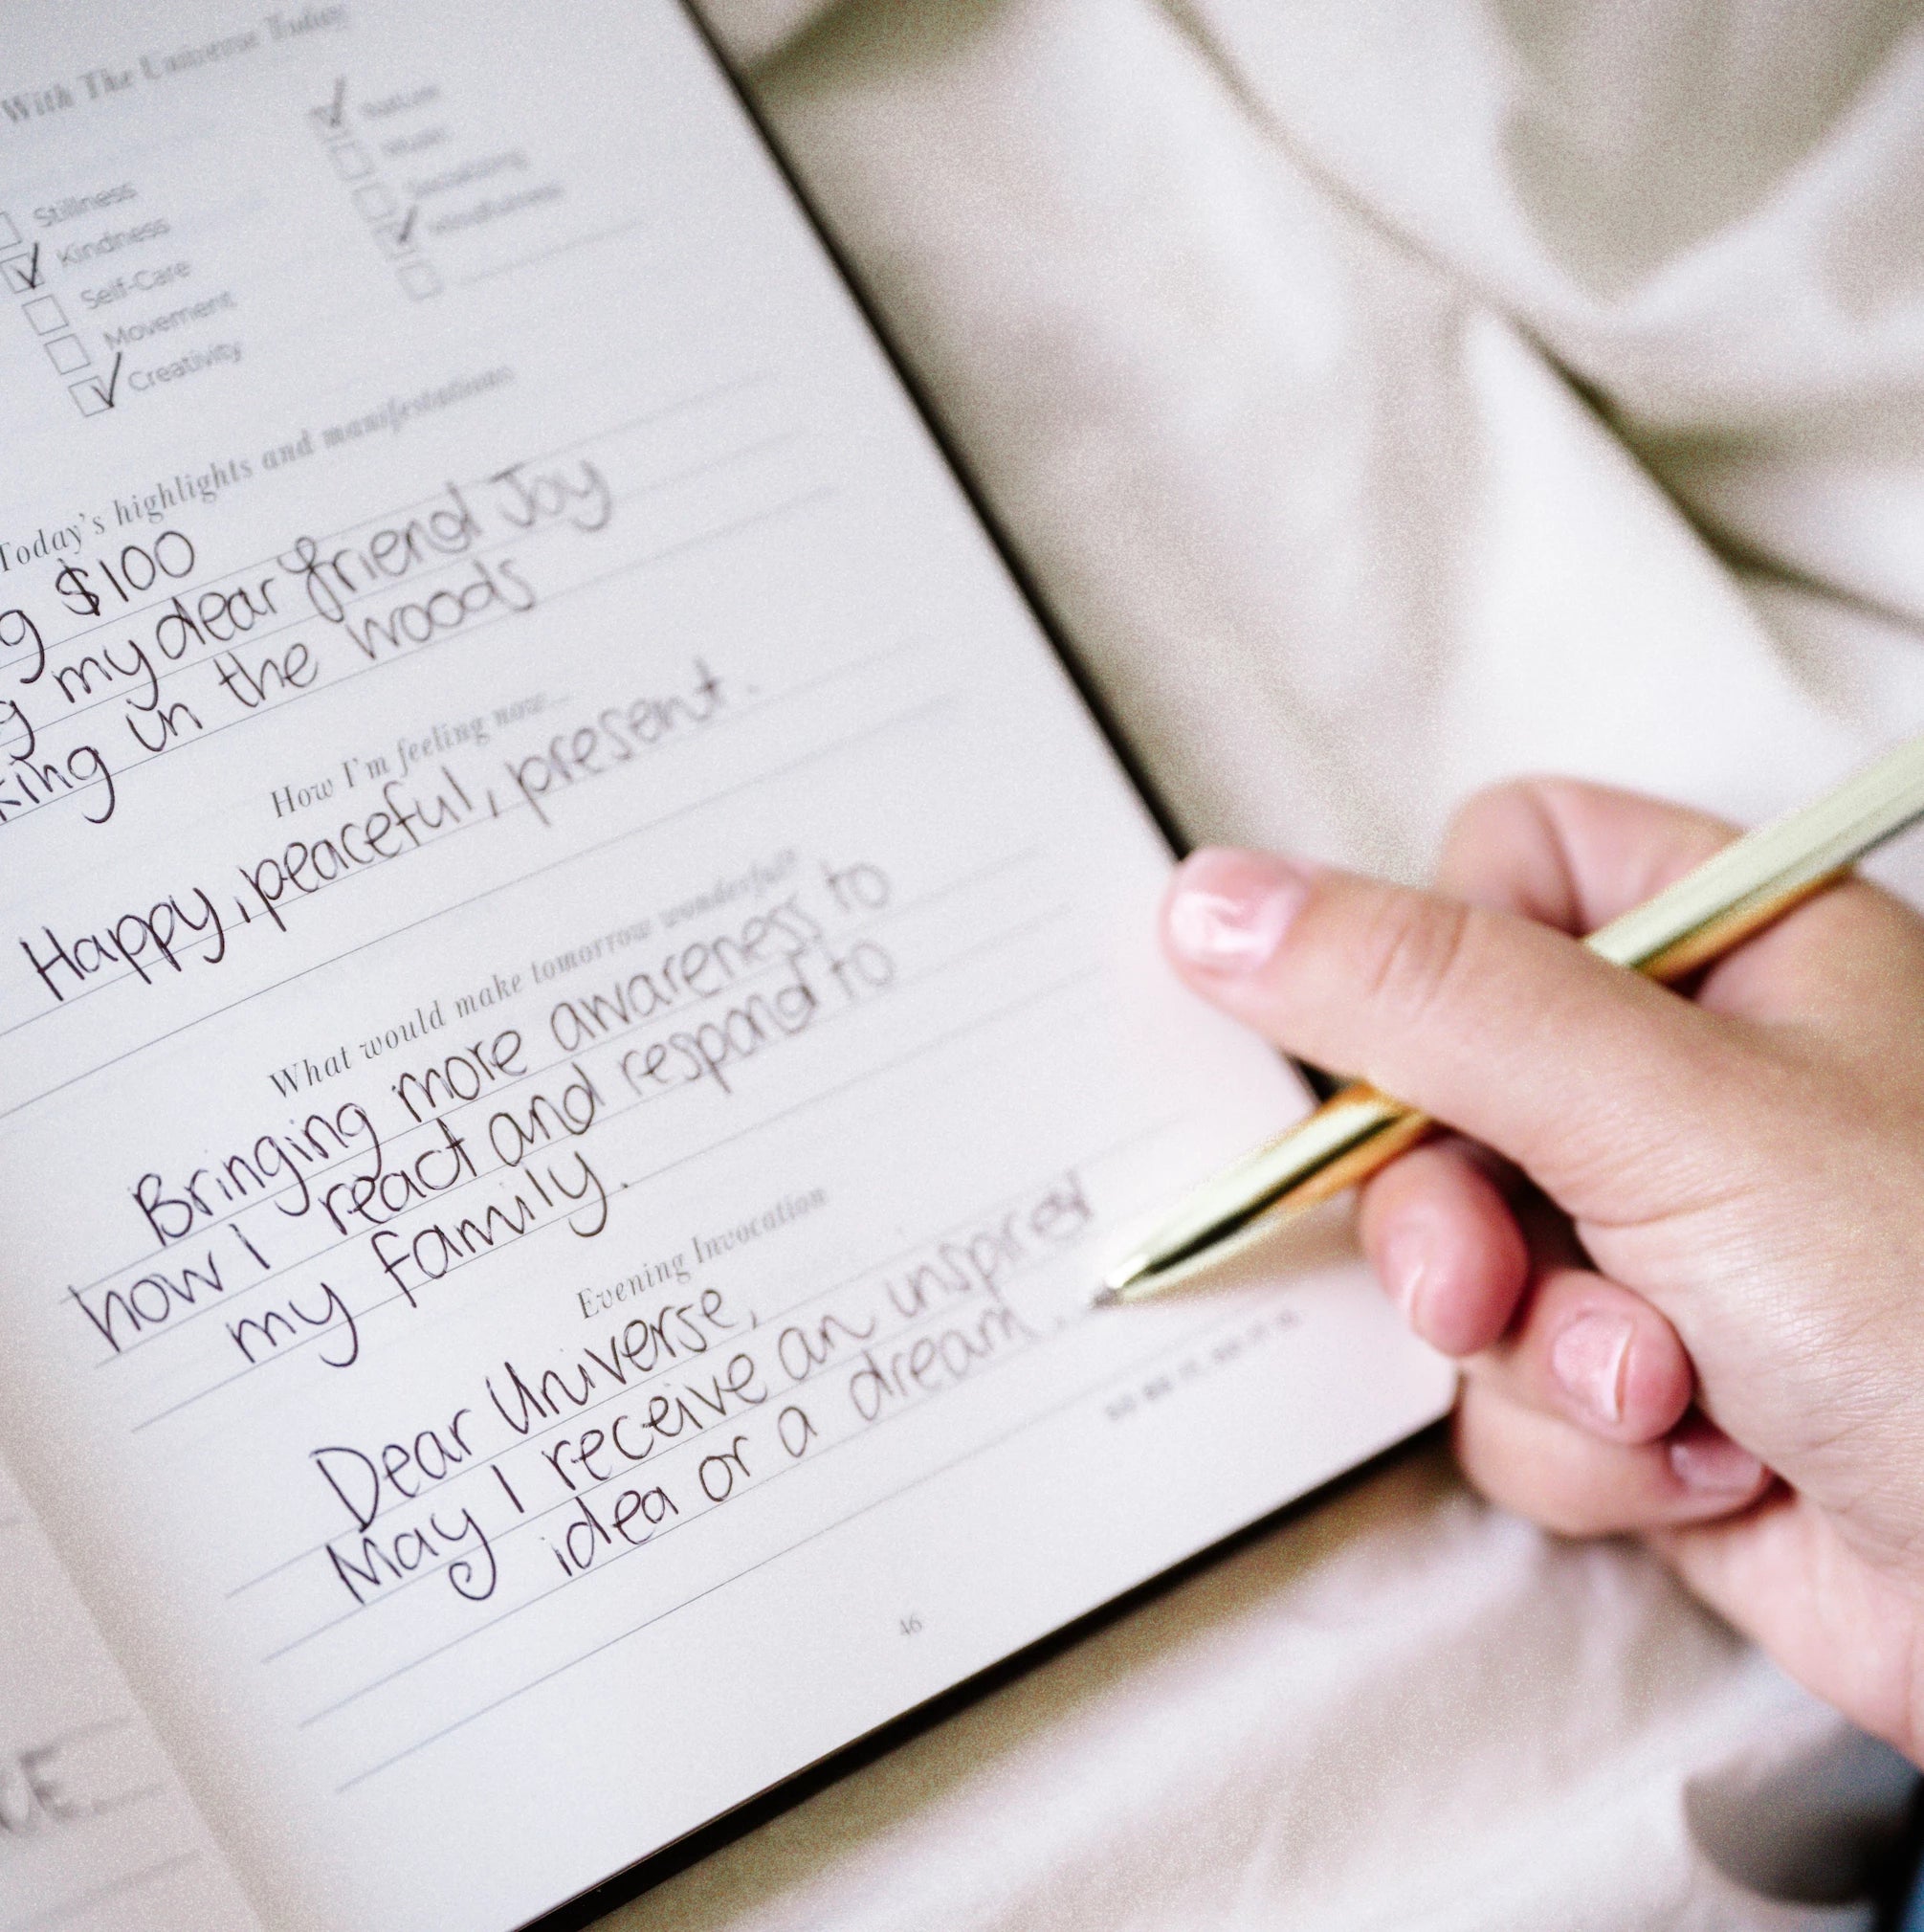 With The Universe Today
Stillness
Kindness
Self-Care
Movement
Creativity
Nature
Music
Mindfulness
Today's highlights and manifestations
g $100
g my dear friend Joy
king in the woods
How I'm feeling now...
Happy, peaceful, present.
What would make tomorrow wonderful?
Bringing more awareness to
how I react and respond to
my family.
Evening Invocation
Dear Universe,
May I receive an inspired
idea or a dream.
46